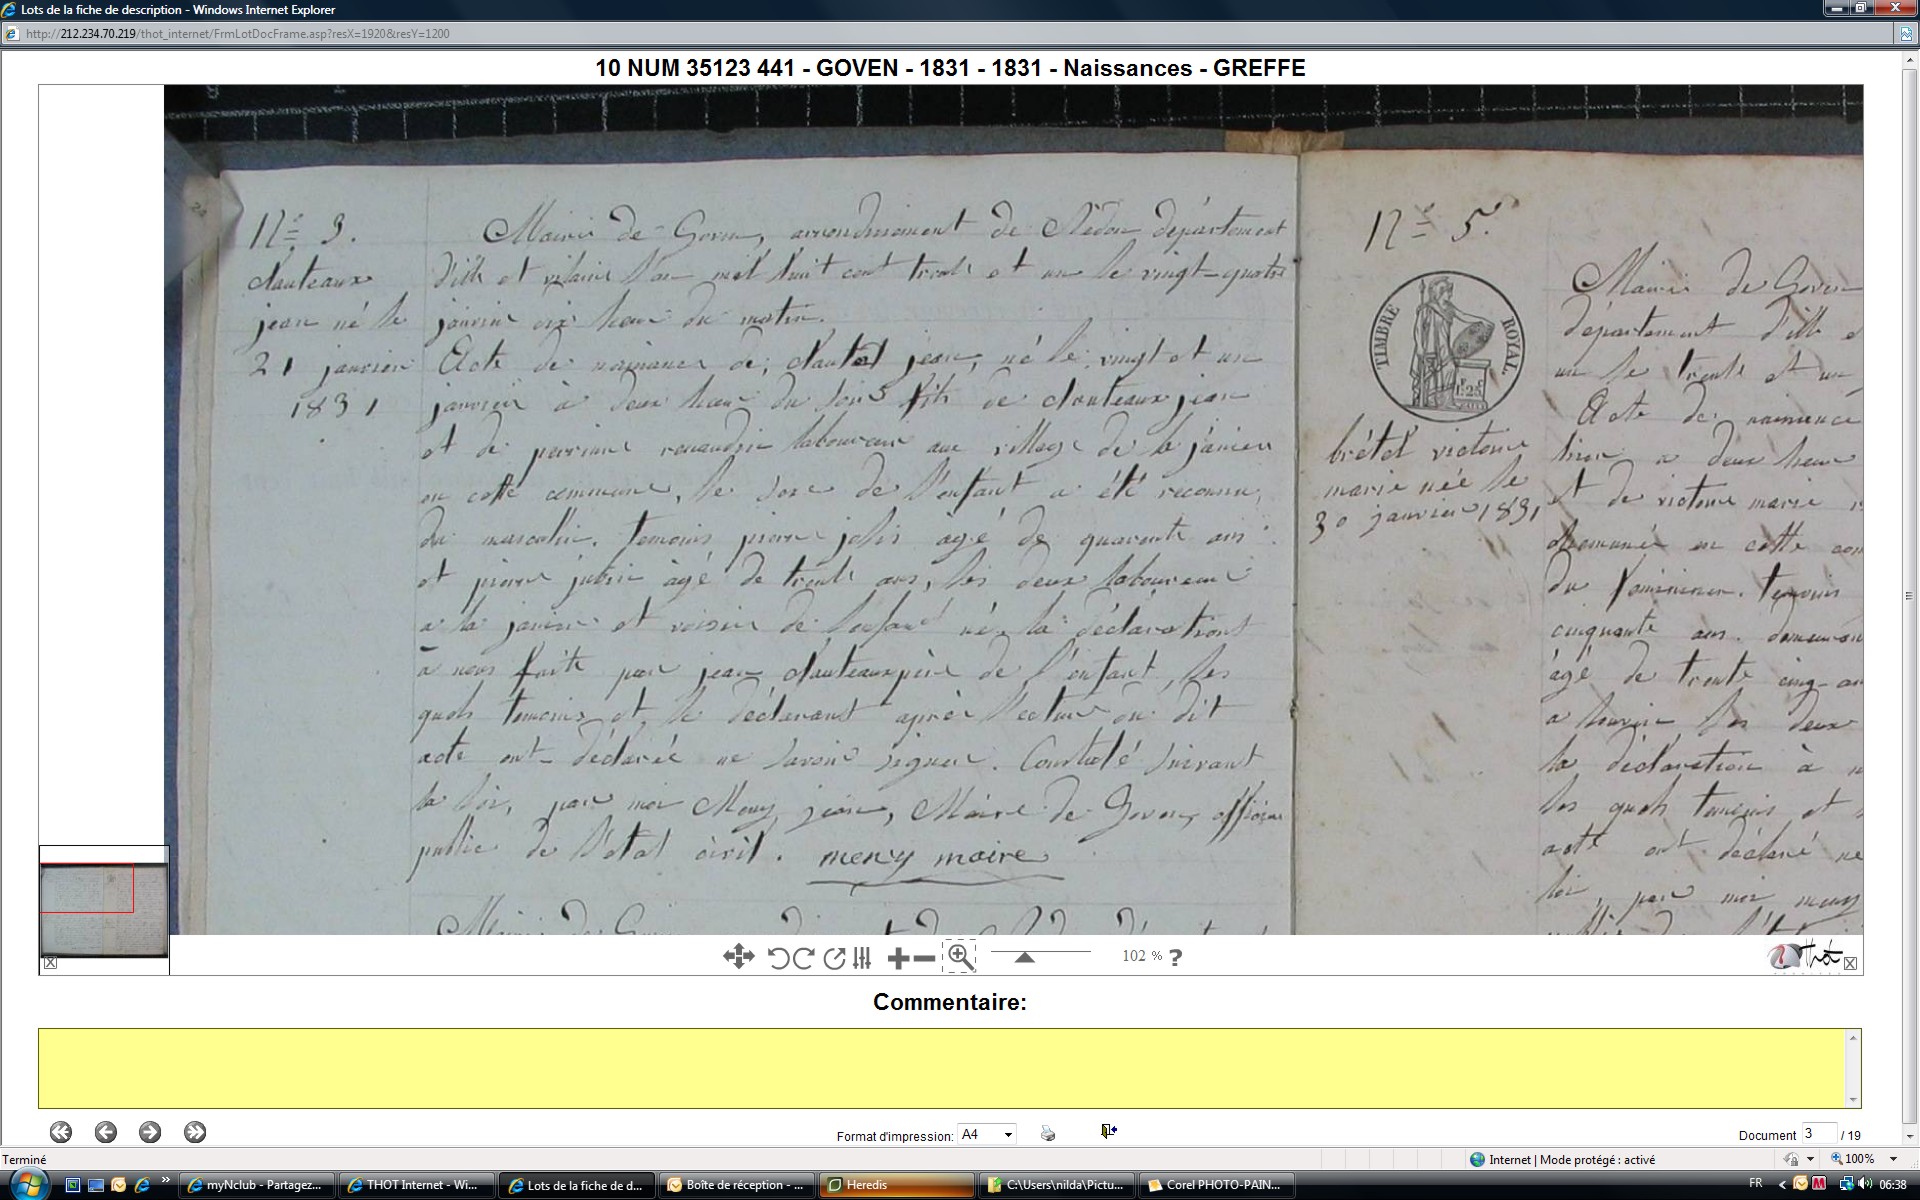 Lots de la fiche de description - Windows Internet Explorer
http://212.234.70.219/thot_internet/FrmLotDocFrame.asp?resX=1920&resY=1200
10 NUM 35123 441 - GOVEN - 1831 - 1831 - Naissances - GREFFE
24
N° 3.
dauteaux
jean né le
21 janvier
1831
Mairie de Goven, arrondissement de Rédon département
d'ille et vilaine l'an mil huit cent trente et un le vingt-quatre
janvier dix heure du matin.
Acte de naissance de, jean, né le vingt et un
janvier à deux heure du soir fils de dauteaux jean
et de perrine laboureur au village de la janiere
en cette commune, le sexe de l'enfant a été reconnu
du masculin. temoins pierre âgé de quarante ans
et pierre âgé de trente ans, les deux laboureurs
a la janiere et voisin de l'enfant né, la déclaration
à nous faite par jean dauteaux père de l'enfant, les
quels temoins et le déclarant après lecture du dit
acte ont déclaré ne savoir signer. Constaté suivant
la loi, par moi Meny jean, Maire de Goven, officier
public de l'etat civil. meny maire
N° 5.
TIMBRE ROYAL.
1.25
brétel victoire
marie née le
30 janvier 1831
Mairie de Goven
département d'ille e
un le trente et un
Acte de naissance
a deux heure
et de victoire marie
en cette com
du féminin. temoins
cinquante ans.
âgé de trente cinq an
les deux
la déclaration à n
les quels temoins et
acte ont déclaré ne
loi, par moi meny
102 % ?
Thot
Commentaire:
Format d'impression: A4
Document 3 / 19
Terminé
Internet | Mode protégé : activé
100%
myNclub - Partagez...
THOT Internet - Wi...
Lots de la fiche de d...
Boîte de réception - ...
Heredis
C:\Users\nilda\Pictu...
Corel PHOTO-PAIN...
FR
06:38